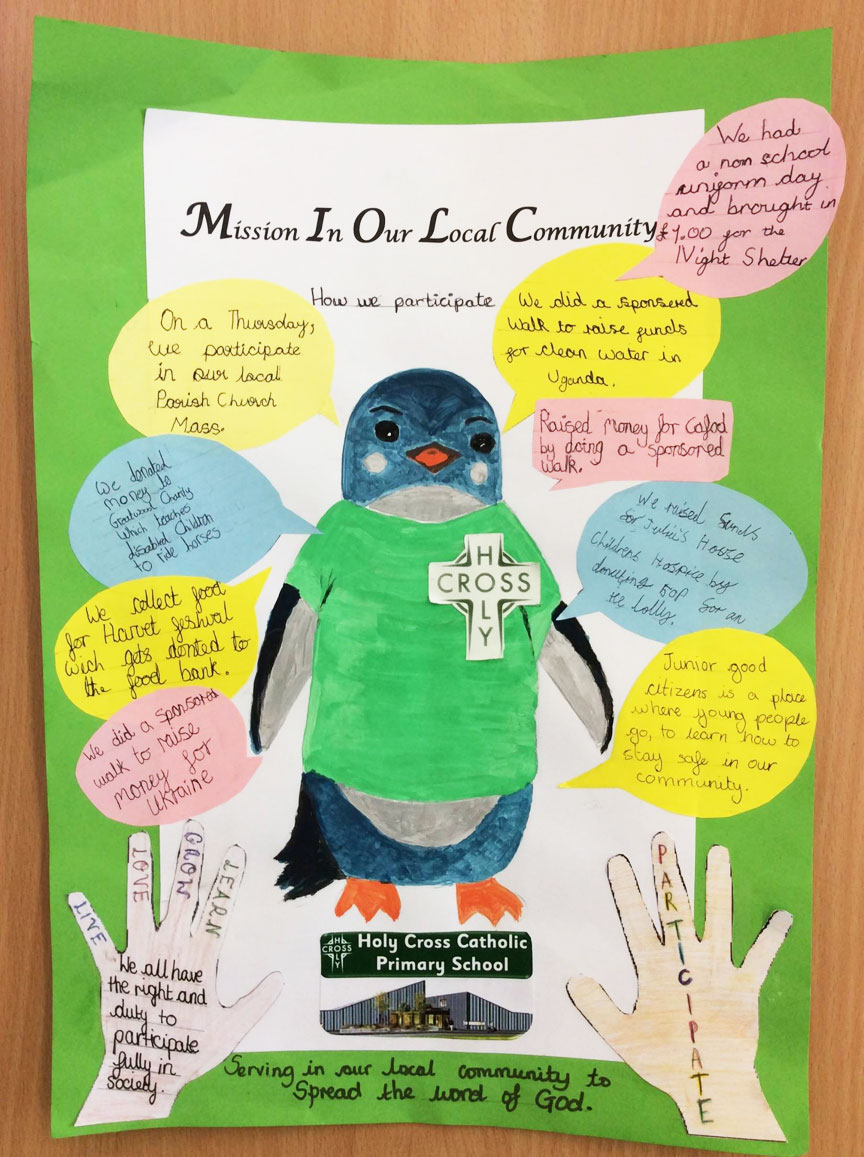 Mission In Our Local Community
How we participate
We had
a non school
uniform day
and brought in
£1.00 for the
Night Shelter
On a Thursday,
we participate
in our local
Parish Church
Mass.
We did a sponsered
walk to raise funds
for clean water in
Uganda.
Raised money for Cafod
by doing a sponsored
walk.
We donated
money to
Greatwood Charity
which teaches
disabled children
to ride horses
We raised funds
for Julia's House
Childrens Hospice by
donating 80p for an
ice lolly.
We collect food
for Harvet festival
wich gets donted to
the food bank.
We did a sponsored
walk to raise
money for
Ukraine
Junior good
citizens is a place
where young people
go, to learn how to
stay safe in our
community.
HOLY
CROSS
LIVE
LOVE
GROW
LEARN
We all have
the right and
duty to
participate
fully in
society.
PARTICIPATE
HOLY
CROSS
Holy Cross Catholic
Primary School
Serving in our local community to
Spread the word of God.